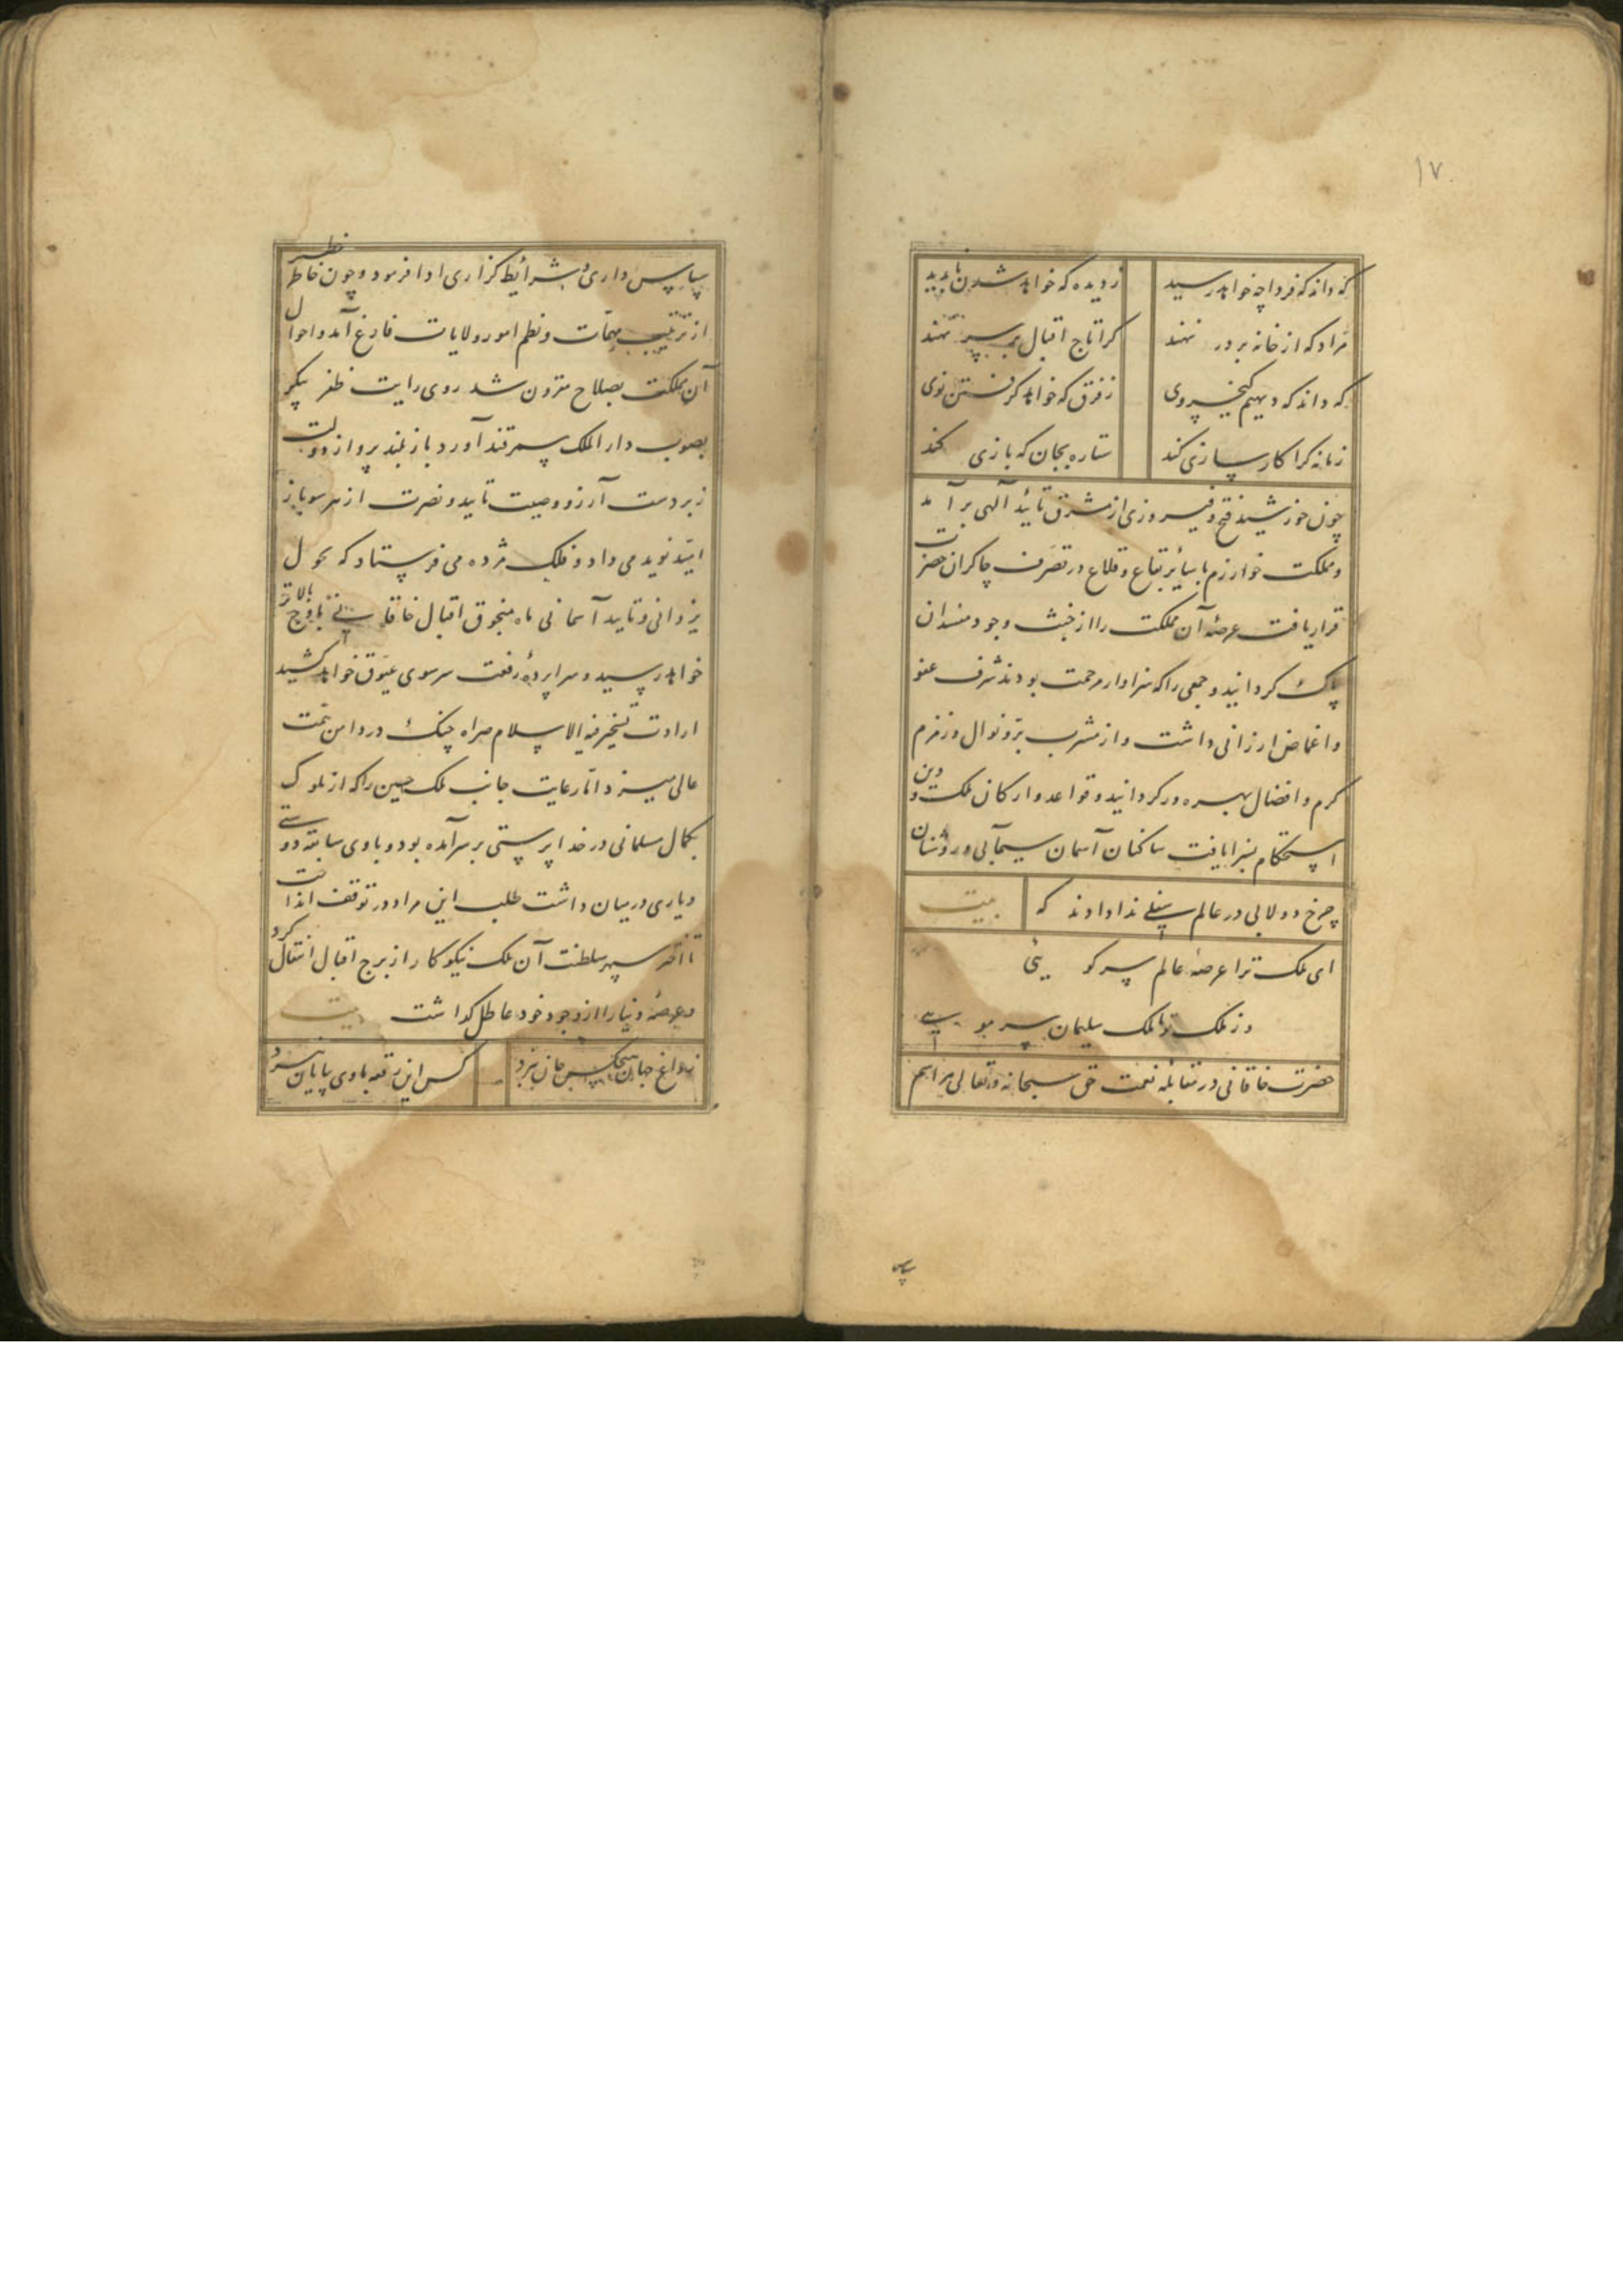 ۱۷
که داند که فردا چه خواهد رسید ز دیده که خواهد شدن ناپدید
کرا تاج اقبال بر سر نهند
که داند که دیهیم کیخسروی ز فرق که خواهد گرفتن نوی
زمانه کرا کارسازی کند ستاره بجان که بازی کند
چون خورشید فتح و فیروزی از مشرق تائید آلهی بر آمد
و مملکت خوارزم با سائر بقاع و قلاع در تصرف چاکران حضرت
قرار یافت عرصهٔ آن مملکت را از خبث وجود مفسدان
پاک کردانید و جمعی را که سزاوار مرحمت بودند شرف عفو
و اغماض ارزانی داشت و از مشرب بر و نوال و زمزم
کرم و افضال بهره ور کردانید و قواعد و ارکان ملک و دین
استحکام پذیرا یافت ساکنان آسمان سیمابی و روشنان
چرخ دولابی در عالم سفلی ندا دادند که بیت
ای ملک ترا عرصهٔ عالم سر کویی
وز ملک تو تا ملک سلیمان سر مویی
حضرت خاقانی در مقابلهٔ نعمت حق سبحانه و تعالی مراسم
سپاس
سپاس داری و شرائط کزاری ادا فرمود و چون خاطر خطیر
از ترتیب مهمات و نظم امور ولایات فارغ آمد و احوال
آن مملکت بصلاح مقرون شد روی رایت ظفر پیکر
بصوب دار الملک سمرقند آورد باز بلند پرواز دولت
زبردست آرزو وصیت تایید و نصرت از هر سو باز
امید نوید می داد و فلک مژده می فرستاد که بحول
یزدانی و تایید آسمانی ماه منجوق اقبال خاقانی باوج بالاتر
خواهد رسید و سراپردهٔ رفعت سر سوی عیوق خواهد کشید
ارادت تسخیر قبة الاسلام هراه چنک در دامن همت
عالی میزد اما رعایت جانب ملک حسین را که از ملوک
بکمال مسلمانی و خدا پرستی بر سر آمده بود و با وی سابقه دوستی
و یاری در میان داشت طلب این مراد در توقف انداخت
تا اختر سپهر سلطنت آن ملک نیکوکار از برج اقبال انتقال کرد
و عرصهٔ دنیا را از وجود خود عاطل کذاشت بیت
ز داغ جهان هیچکس جان نبرد کس این رقعه با وی بپایان نبرد